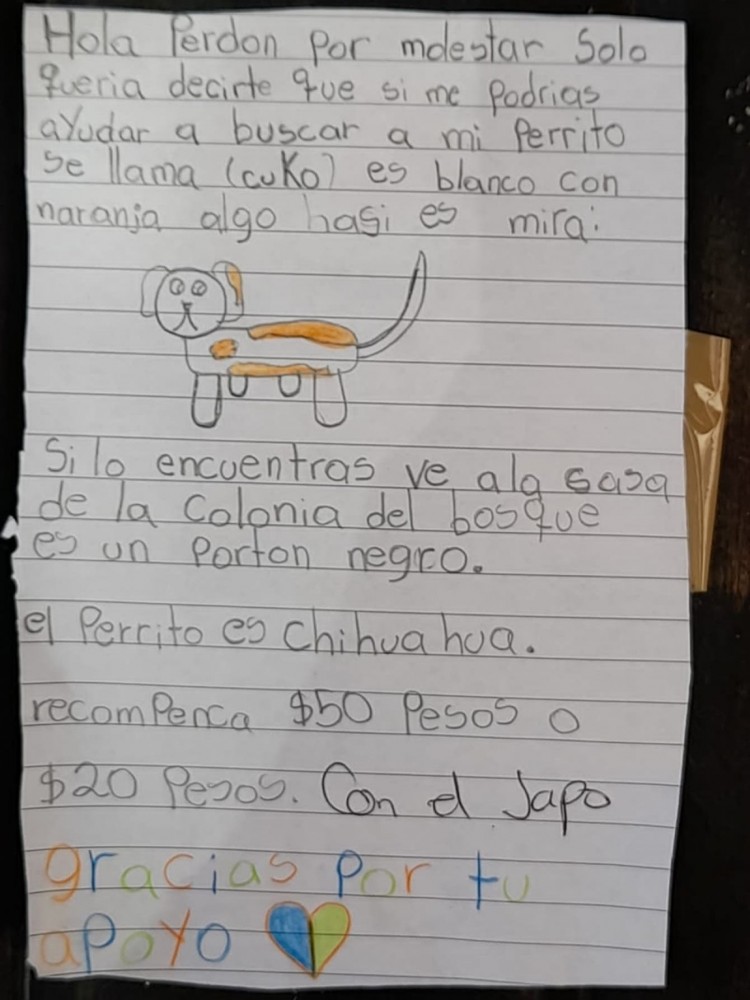 Hola Perdon por molestar Solo
queria decirte que si me podrias
ayudar a buscar a mi Perrito
se llama (cuko) es blanco con
naranja algo hasi es mira:
Si lo encuentras ve ala casa
de la Colonia del bosque
es un porton negro.
el Perrito es Chihuahua.
recomPenca $50 Pesos o
$20 Pesos. Con el Japo
gracias Por tu
apoyo